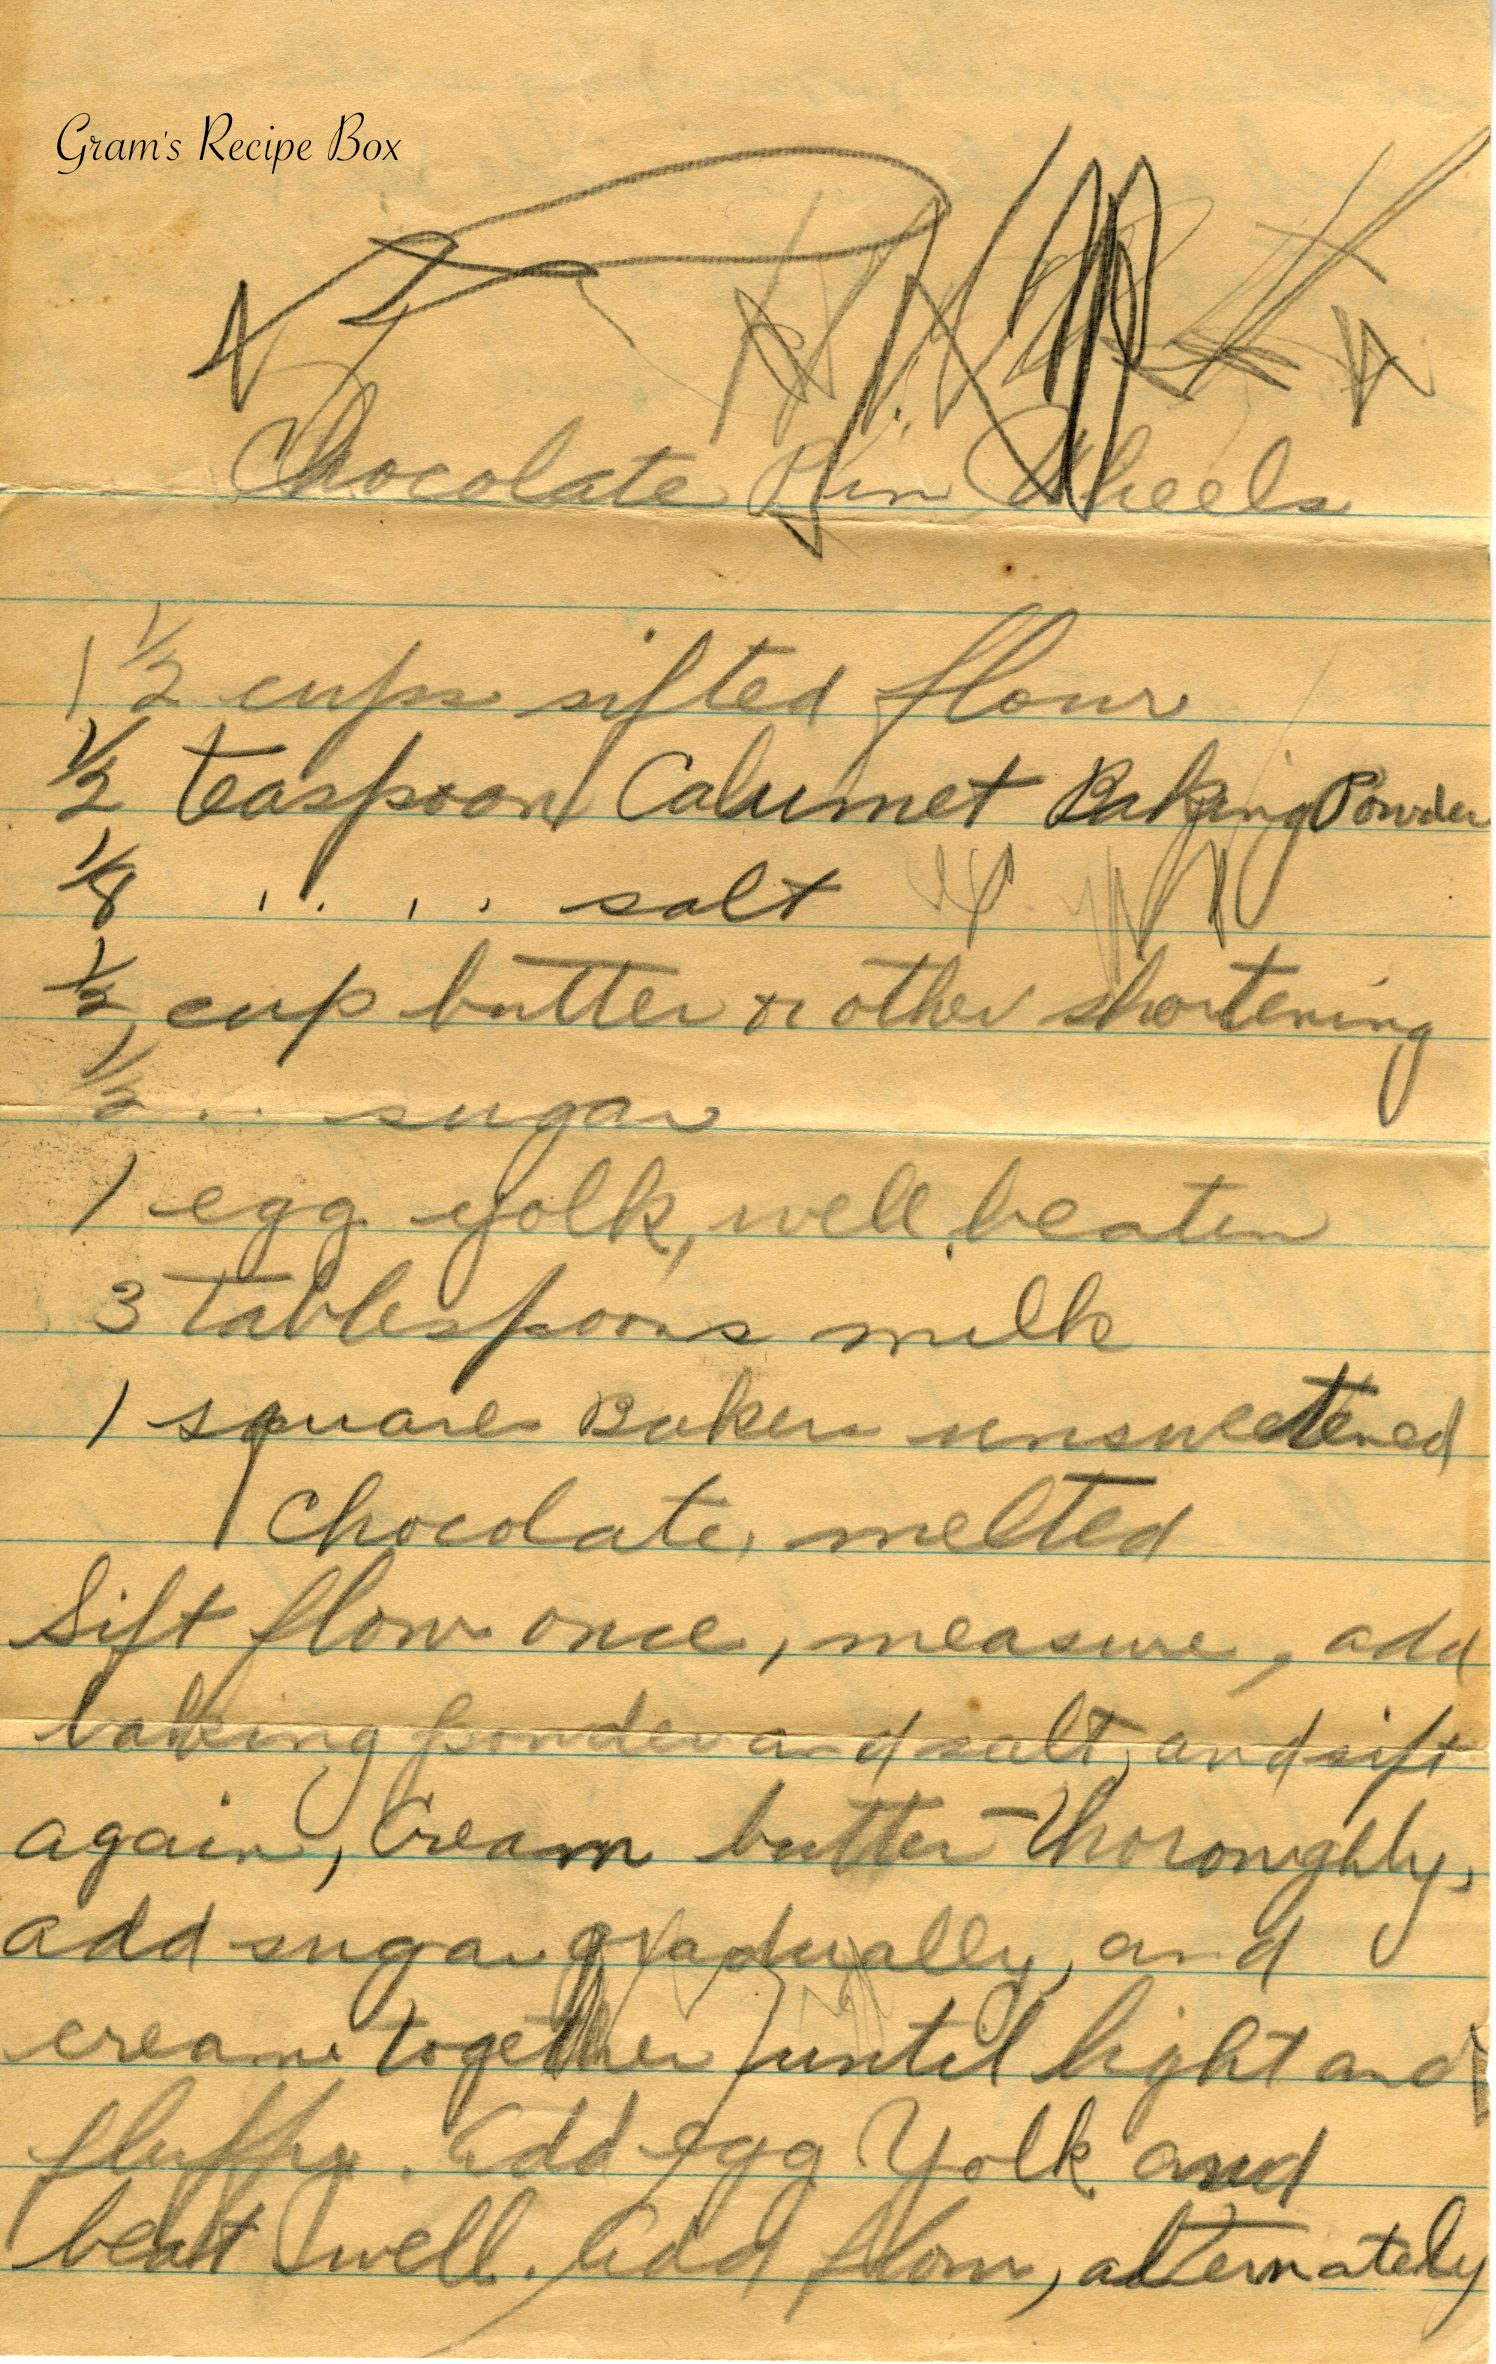 Gram's Recipe Box
Chocolate Pin Wheels
1 1/2 cups sifted flour
1/2 teaspoon Calumet Baking Powder
1/8 " " salt
1/2 cup butter or other shortening
1/2 " sugar
1 egg yolk, well beaten
3 tablespoons milk
1 square Bakers unsweetened
chocolate, melted
Sift flour once, measure, add
baking powder and salt, and sift
again, Cream butter thoroughly,
add sugar gradually, and
cream together until light and
fluffy. Add egg yolk and
beat well. Add flour, alternately